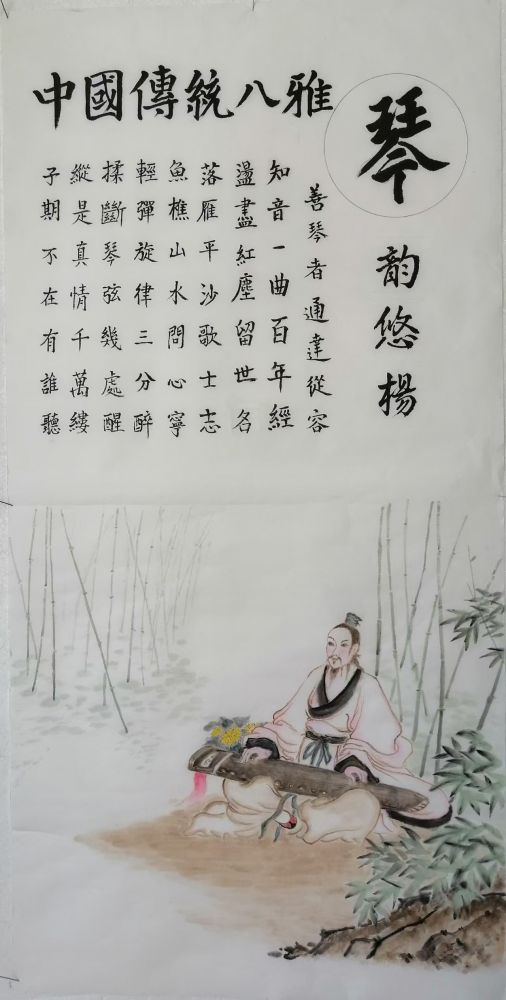 中國傳統八雅
琴
韵悠楊
善琴者通達從容
知音一曲百年經
盪盡紅塵留世名
落雁平沙歌士志
魚樵山水問心寧
輕彈旋律三分醉
揉斷琴弦幾處醒
縱是真情千萬縷
子期不在有誰聽